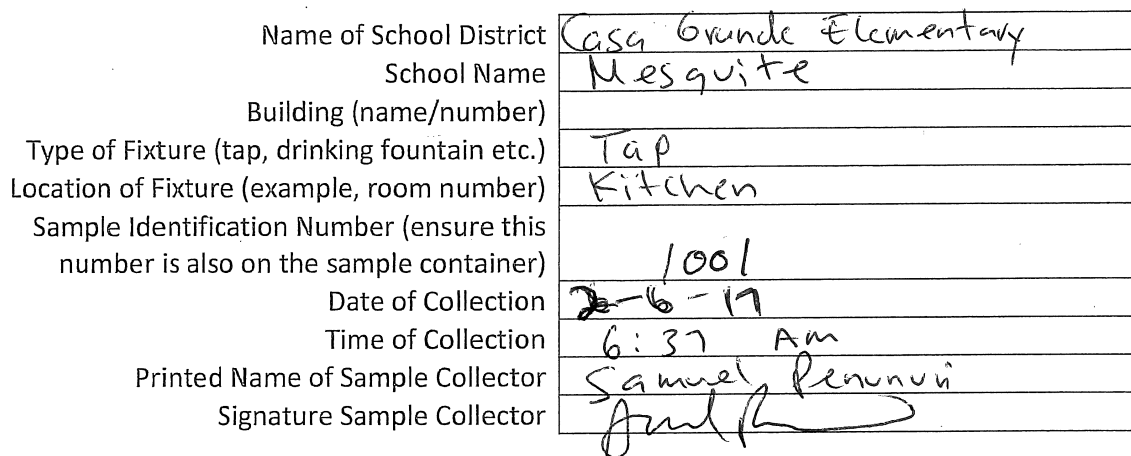 Name of School District Casa Grande Elementary
School Name Mesquite
Building (name/number)
Type of Fixture (tap, drinking fountain etc.) Tap
Location of Fixture (example, room number) Kitchen
Sample Identification Number (ensure this
number is also on the sample container) 1001
Date of Collection 2-6-17
Time of Collection 6:37 AM
Printed Name of Sample Collector Samuel Penunuri
Signature Sample Collector